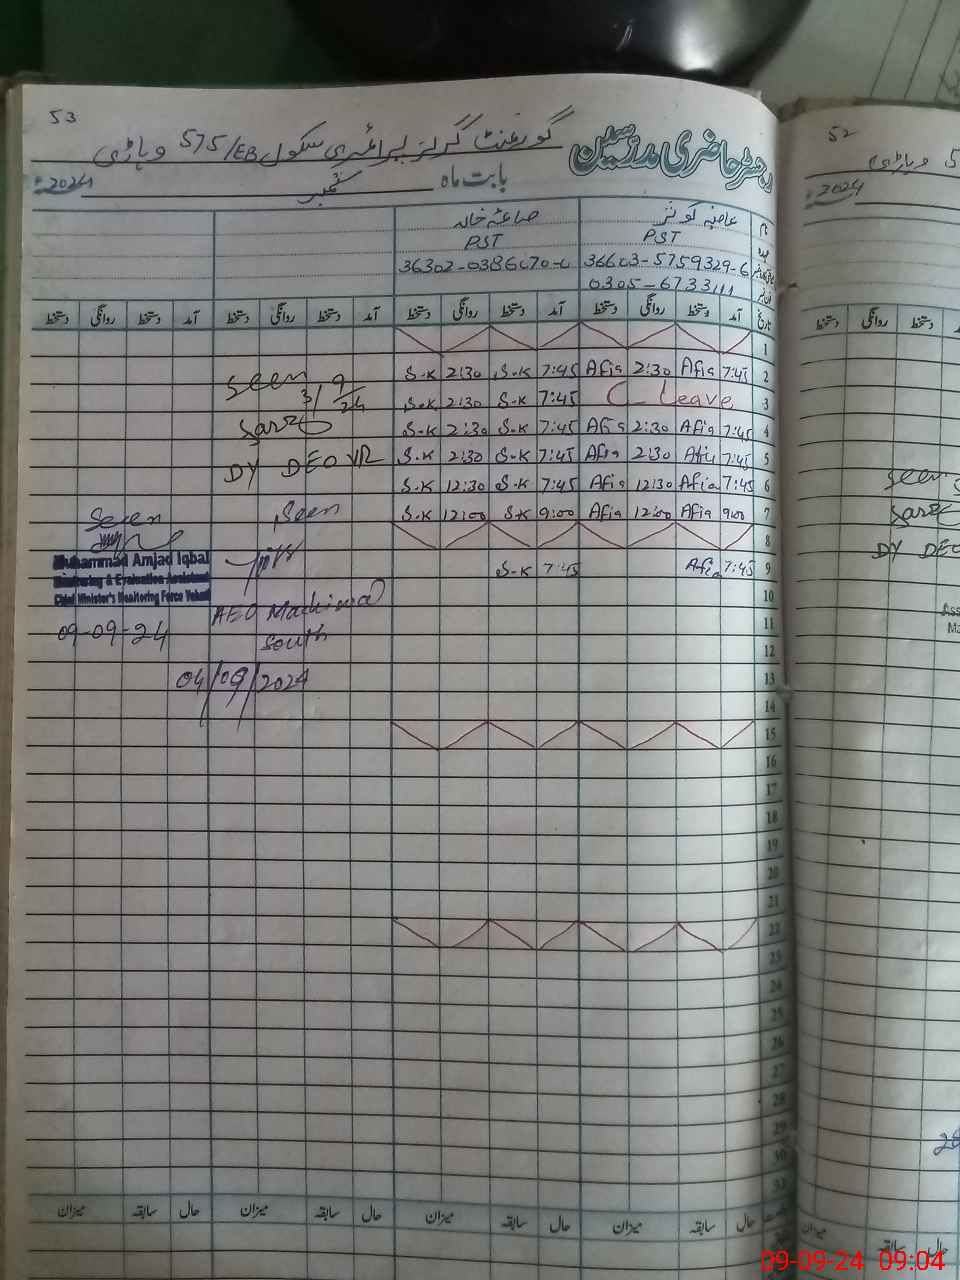 53
رجسٹر حاضری مدرسین گورنمنٹ گرلز پرائمری سکول 575/EB وہاڑی
بابت ماہ ستمبر 2024ء
نام عافیہ کوثر صاعقہ خالد
عہدہ PST PST
36603-5759329-6 36302-0386670-0
0305-6733111
تاریخ آمد دستخط روانگی دستخط آمد دستخط روانگی دستخط آمد دستخط روانگی دستخط آمد دستخط روانگی دستخط
1
2 7:45 Afia 2:30 Afia 7:45 S.K 2:30 S.K
3 C Leave 7:45 S.K 2:30 S.K
4 7:45 Afia 2:30 Afia 7:45 S.K 2:30 S.K
5 7:45 Afia 2:30 Afia 7:45 S.K 2:30 S.K
6 7:45 Afia 12:30 Afia 7:45 S.K 12:30 S.K
7 9:00 Afia 12:00 Afia 9:00 S.K 12:00 S.K
8
9 7:45 Afia 7:45 S.K
10
11
12
13
14
15
16
17
18
19
20
21
22
23
24
25
26
27
28
29
30
31
Seen
3/9/24
DY DEO VR
Seen
AEO Machiwal
South
04/09/2024
Seen
Muhammad Amjad Iqbal
Monitoring & Evaluation Assistant
Chief Minister's Monitoring Force Vehari
09-09-24
حال سابقہ میزان حال سابقہ میزان حال سابقہ میزان حال سابقہ میزان
52
5 وہاڑی
2024ء
دستخط روانگی دستخط
Seen
DY DEO
Ass
Ma
28
میزان سابقہ حال
09-09-24 09:04